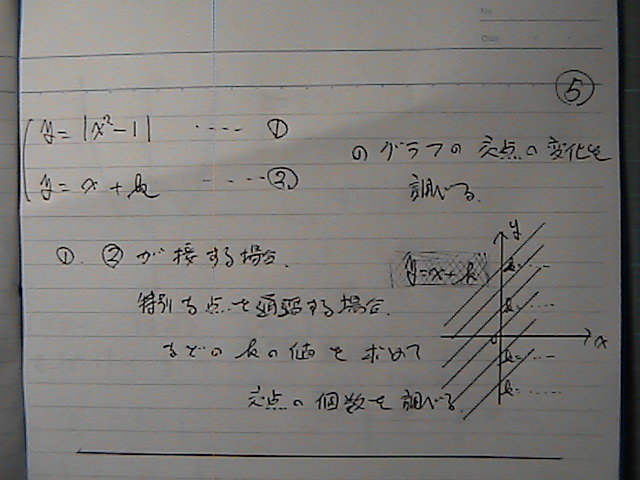 No.
Date
⑤
y = |x²-1| ‥‥ ①
y = x + k ‥‥‥②
のグラフの交点の変化を
調べる.
①. ②が接する場合.
y=x+k
特別な点を通過する場合.
などの k の値を求めて
交点の個数を調べる.
y
k=‥‥
k=‥‥
0
x
k=‥‥
k=‥‥